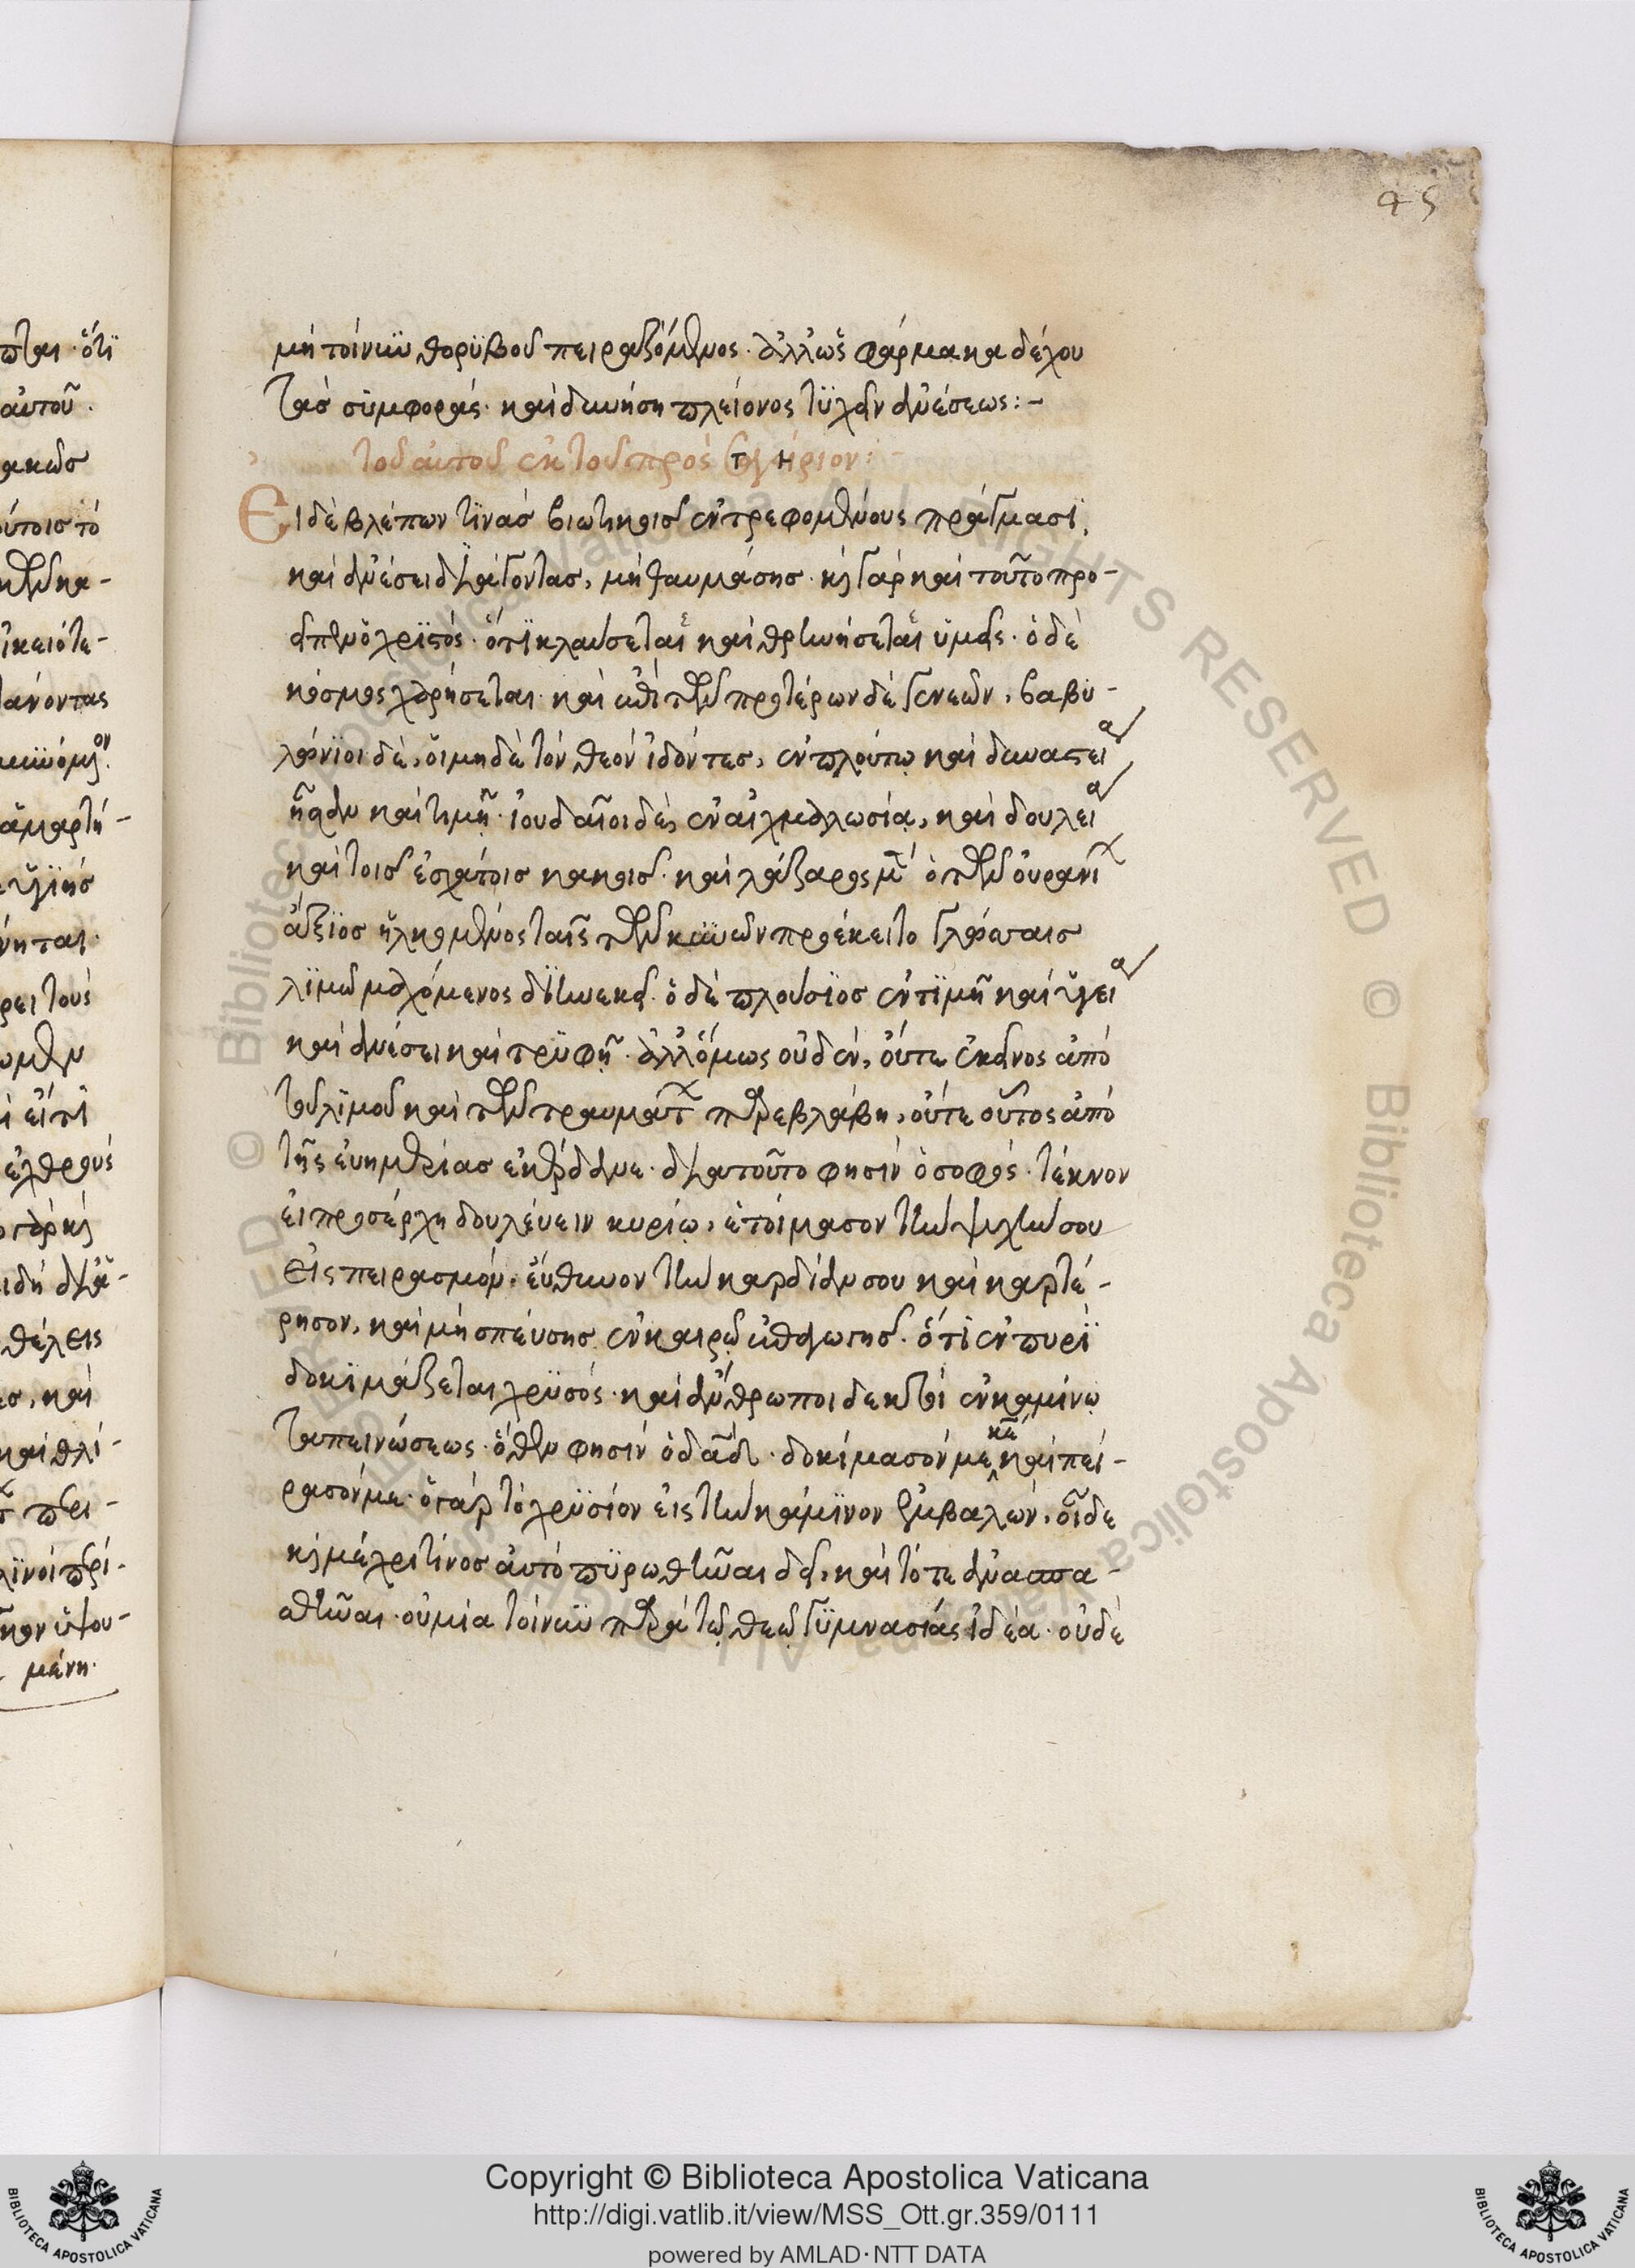 45
μὴ τοίνυν θορυβοῦ πειραζόμενος. ἀλλ' ὡς φάρμακα δέχου
τὰς συμφοράς. καὶ δυνήση πλείονος τυχεῖν ἀνέσεως:-
τοῦ αὐτοῦ ἐκ τοῦ πρὸς
Εἰ δὲ βλέπων τινὰς βιωτικοῖς ἐντρεφομένους πράγμασι,
καὶ ἀνέσει διάγοντας, μὴ θαυμάσης. καὶ γὰρ καὶ τοῦτο προ-
εῖπεν ὁ χριστός. ὅτι κλαύσεται καὶ θρηνήσεται ὑμεῖς. ὁ δὲ
κόσμος χαρήσεται. καὶ ἐπὶ τῶν προτέρων δὲ γενεῶν, βαβυ-
λώνιοι δὲ, οἱ μηδὲ τὸν θεὸν ἰδόντες, ἐν πλούτω καὶ δυναστεία
ἦσαν καὶ τιμῆ. ἰουδαῖοι δὲ, ἐν αἰχμαλωσία, καὶ δουλεία
καὶ τοῖς ἐσχάτοις κακοῖς. καὶ λάζαρος μὲν ὁ τῶν οὐρανῶν
ἄξιος ἡλκωμένος ταῖς τῶν κυνῶν προέκειτο γλώτταις
λιμῶ μαχόμενος διηνεκεῖ. ὁ δὲ πλούσιος ἐν τιμῆ καὶ ὑγεία
καὶ ἀνέσει καὶ τρυφῆ. ἀλλ' ὅμως οὐδὲν, οὔτε ἐκεῖνος ἀπὸ
τοῦ λιμοῦ καὶ τῶν τραυμάτων παρεβλάβη, οὔτε οὗτος ἀπὸ
τῆς εὐημερίας ἐκέρδανε. διατοῦτο φησὶν ὁ σοφός. τέκνον
εἰ προσέρχη δουλεύειν κυρίω, ἑτοίμασον τὴν ψυχήν σου
εἰς πειρασμόν. εὔθυνον τὴν καρδίαν σου καὶ καρτέ-
ρησον, καὶ μὴ σπεύσης ἐν καιρῶ ἐπαγωγῆς. ὅτι ἐν πυρὶ
δοκιμάζεται χρυσός. καὶ ἄνθρωποι δεκτοὶ ἐν καμίνω
ταπεινώσεως. ὅθεν φησὶν ὁ δαδ. δοκίμασόν με κε καὶ πεί-
ρασόν με. ὁ γὰρ τὸ χρυσίον εἰς τὴν κάμινον ἐμβαλών, οἶδε
καὶ μέχρι τίνος αὐτὸ πυρωθῆναι δεῖ, καὶ τότε ἀνασπα-
σθῆναι. οὐ μία τοίνυν παρὰ τῶ θεῶ γυμνασίας ἰδέα. οὐδὲ
Copyright © Biblioteca Apostolica Vaticana
http://digi.vatlib.it/view/MSS_Ott.gr.359/0111
powered by AMLAD·NTT DATA
BIBLIOTECA APOSTOLICA VATICANA
BIBLIOTECA APOSTOLICA VATICANA